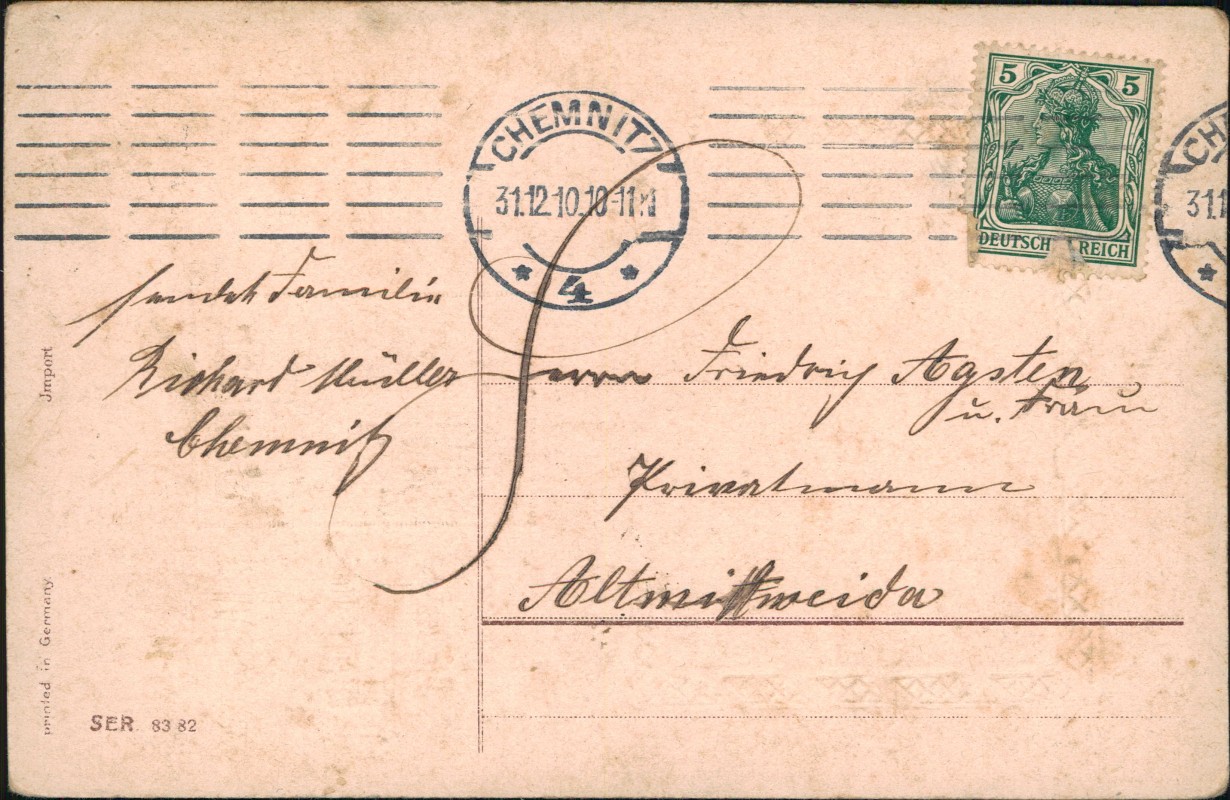 CHEMNITZ
31.12.10.10-11
* 4 *
5 5
DEUTSCHES REICH
CH
31.1
*
sendet Familie
Richard Müller
Chemnitz
Herrn Friedrich Agsten
u. Frau
Privatmann
Altmittweida
Import
printed in Germany
SER 83 82